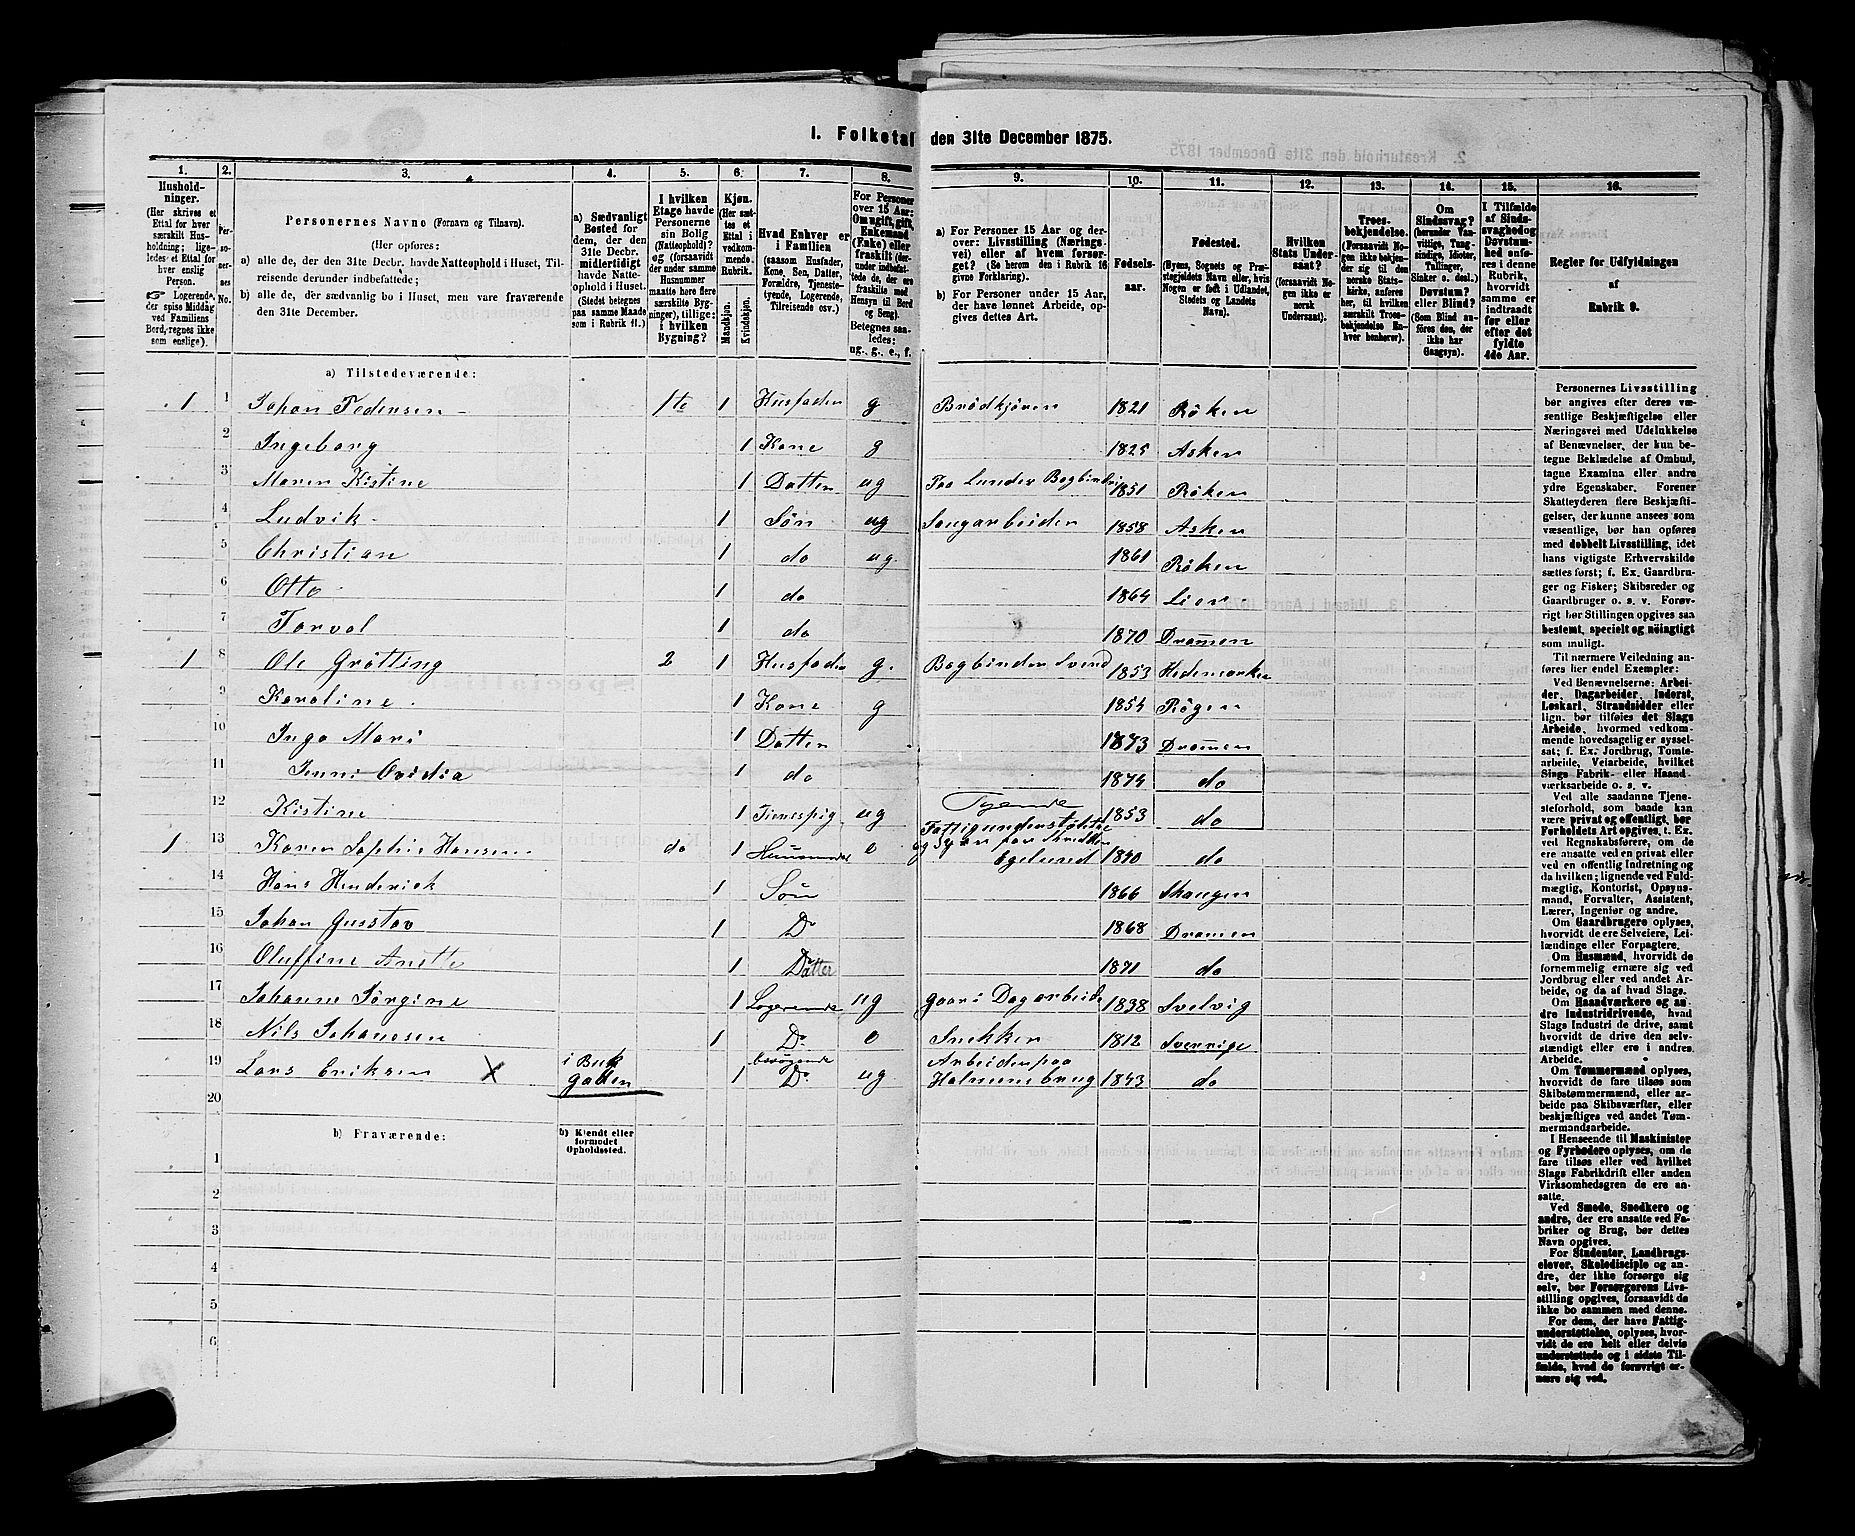 I. Folketal den 31te December 1875.
1. 2. 3. 4. 5. 6. 7. 8. 9. 10. 11. 12. 13. 14. 15. 16.
Husholdninger. (Her skrives et Ettal for hver særskilt Husholdning; ligeledes et Ettal for hver enslig Person. ☞ Logerende, der spise Middag ved Familiens Bord, regnes ikke som enslige).
Personernes No.
Personernes Navne (Fornavn og Tilnavn).
(Her opføres:
a) alle de, der den 31te Decbr. havde Natteophold i Huset, Tilreisende derunder indbefattede;
b) alle de, der sædvanlig bo i Huset, men vare fraværende den 31te December.
a) Sædvanligt Bosted for dem, der den 31te Decbr. midlertidigt havde Natteophold i Huset. (Stedet betegnes paa samme Maade som i Rubrik 11.)
I hvilken Etage havde Personerne sin Bolig (Natteophold)? og (forsaavidt der under samme Husnummer maatte høre flere særskilte Bygninger), tillige: i hvilken Bygning?
Kjøn. (Her sættes et Ettal i vedkommende Rubrik. Mandkjøn. Kvindekjøn.
Hvad Enhver er i Familien (saasom Husfader, Kone, Søn, Datter, Forældre, Tjenestetyende, Logerende, Tilreisende osv.)
For Personer over 15 Aar: Om ugift, gift, Enkemand (Enke) eller fraskilt (derunder indbefattede de, der ere fraskilte med Hensyn til Bord og Seng). Betegnes saaledes: ug., g., e., f.
a) For Personer 15 Aar og derover: Livsstilling (Næringsvei) eller af hvem forsørget? (Se herom den i Rubrik 16 givne Forklaring).
b) For Personer under 15 Aar, der have lønnet Arbeide, opgives dettes Art.
Fødselsaar.
Fødested. (Byens, Sognets og Præstegjeldets Navn eller, hvis Nogen er født i Udlandet, Stedets og Landets Navn).
Hvilken Stats Undersaat? (forsaavidt Nogen ikke er norsk Undersaat).
Troesbekjendelse. (Forsaavidt Nogen ikke bekjender sig til den norske Statskirke, anføres her, til hvilken særskilt Troesbekjendelse Enhver henhører).
Om Sindssvag? (herunder Vanvittige, Tungsindige, Idioter, Tullinger, Sinker o. desl.) Døvstum? eller Blind? (Som Blind anføres den, der ikke har Gangsyn).
I Tilfælde af Sindssvaghed og Døvstumhed anføres i denne Rubrik, hvorvidt samme er indtraadt før eller efter det fyldte 4de Aar.
Regler for Udfyldningen af Rubrik 9.
a) Tilstedeværende:
1 1 Johan Pedersen 1te 1 Husfader g Brödkjörer 1821 Röken
2 Ingeborg 1 Kone g 1825 Asker
3 Maren Kistine 1 Datter ug Paa Lunder Bogbinderi 1851 Röken
4 Ludvik 1 Søn ug Saugarbeider 1858 Asker
5 Christian 1 do ug. 1861 Röken
6 Otto 1 do 1864 Lier
7 Torval 1 do 1870 Dramen
1 8 Ole Grötting 2 1 Husfader g. Bogbinder Svend 1853 Hedemarken
9 Karoline 1 Kone g 1854 Rögen
10 Inga Mari 1 Datter 1873 Dramen
11 Jenni Ovidia 1 do 1874 do
12 Kistine 1 Tienespig ug Tyende 1853 do
1 13 Karen Sophie Hansen do 1 e Fattigunderstöttet og Syer for 1840 do
14 Hans Henderick 1 Søn 1866
15 Johan Gusstav 1 Do 1868 Dramen
16 Oluffine Anette 1 Datter 1871 do
17 Johanne Jörgine 1 Logerende ug gaar i Dagarbeide 1838 Svelvig
18 Nils Johanesen 1 Do e Snekker 1812 Sverrige
19 Lars Eriksen X i Buk gaden 1 besøgende Do ug Arbeider paa Holmensbrug 1843 do
20
b) Fraværende:
b) Kjendt eller formodet Opholdssted.
1
2
3
4
5
6
Personernes Livsstilling bør angives efter deres væsentlige Beskjæftigelse eller Næringsvei med Udelukkelse af Benævnelser, der kun betegne Beklædelse af Ombud, tagne Examina eller andre ydre Egenskaber. Forener Skatteyderen flere Beskjæftigelser, der kunne ansees som væsentlige, bør han opføres med dobbelt Livsstilling, idet hans vigtigste Erhvervskilde sættes først; f. Ex. Gaardbruger og Fisker; Skibsreder og Gaardbruger o. s. v. Forøvrigt bør Stillingen opgives saa bestemt, specielt og nöiagtigt som muligt.
Til nærmere Veiledning anføres her endel Exempler:
Ved Benævnelserne: Arbeider, Dagarbeider, Inderst, Løskarl, Strandsidder eller lign. bør tilføies det Slags Arbeide, hvormed vedkommende hovedsagelig er sysselsat; f. Ex. Jordbrug, Tomtearbeide, Veiarbeide, hvilket Slags Fabrik- eller Haandværksarbeide o. s. v.
Ved alle saadanne Tjenesteforhold, som baade kan være privat og offentligt, bør Forholdets Art opgives, t. Ex. ved Regnskabsførere, om de ere ansatte ved en privat eller ved en offentlig Indretning og da hvilken; lignende ved Fuldmægtig, Kontorist, Opsynsmand, Forvalter, Assistent, Lærer, Ingeniør og andre.
Om Gaardbrugere oplyses, hvorvidt de ere Selveiere, Leilændinge eller Forpagtere.
Om Husmænd, hvorvidt de fornemmelig ernære sig ved Jordbrug eller ved andet Arbeide, og da af hvad Slags.
Om Haandværkere og andre Industridrivende, hvad Slags Industri de drive, samt hvorvidt de drive den selvstændigt eller ere i andres Arbeide.
Om Tømmermænd oplyses, hvorvidt de fare tilsøs som Skibstømmermænd, eller arbeide paa Skibsværfter, eller beskjæftiges ved andet Tømmermandsarbeide.
I Henseende til Maskinister og Fyrbødere oplyses, om de fare tilsøs eller ved hvilket Slags Fabrikdrift eller anden Virksomhedsgren de ere ansatte.
Ved Smede, Snedkere og andre, der ere ansatte ved Fabriker og Brug, bør dettes Navn opgives.
For Studenter, Landbrugselever, Skoledisciple og andre, der ikke forsørge sig selv, bør Forsørgerens Livsstilling opgives, forsaavidt de ikke bo sammen med denne.
For dem, der have Fattigunderstøttelse, oplyses, hvorvidt de ere helt eller delvis understøttede og i sidste Tilfælde, hvad de forøvrigt ernære sig ved.